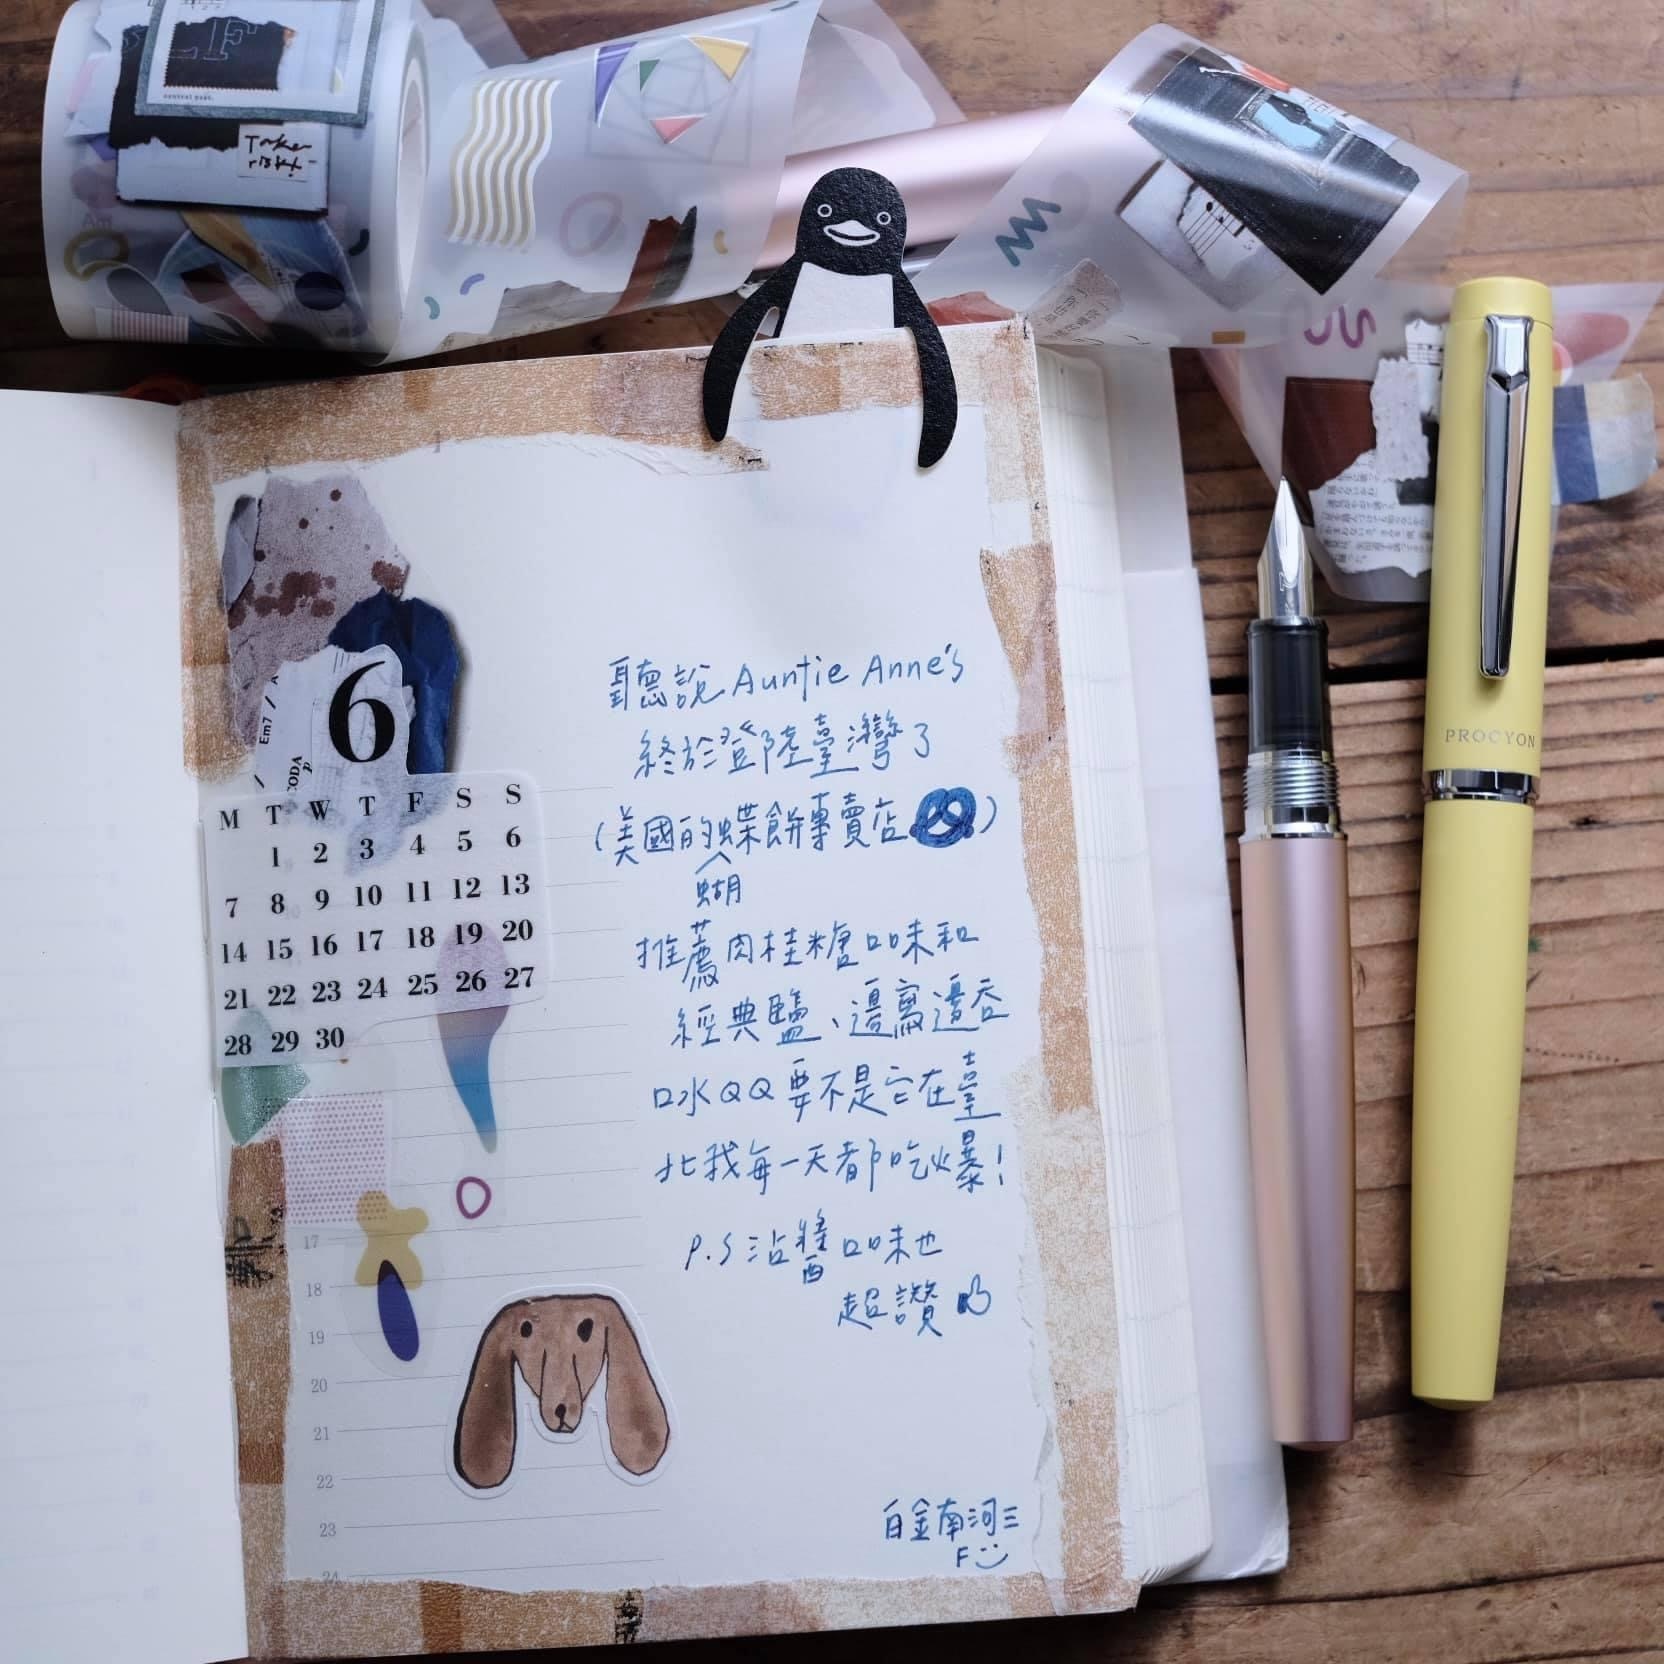 Taker
risk.
central post.
PROCYON
6
Em7
CODA
M T W T F S S
1 2 3 4 5 6
7 8 9 10 11 12 13
14 15 16 17 18 19 20
21 22 23 24 25 26 27
28 29 30
17
18
19
20
21
22
23
24
聽說 Auntie Anne's
終於登陸臺灣了
(美國的蝶餅專賣店)
蝴
推薦肉桂糖口味和
經典鹽、邊寫邊吞
口水QQ要不是它在臺
北我每一天都吃爆!
P.S 沾醬口味也
超讚
白金南河三
F